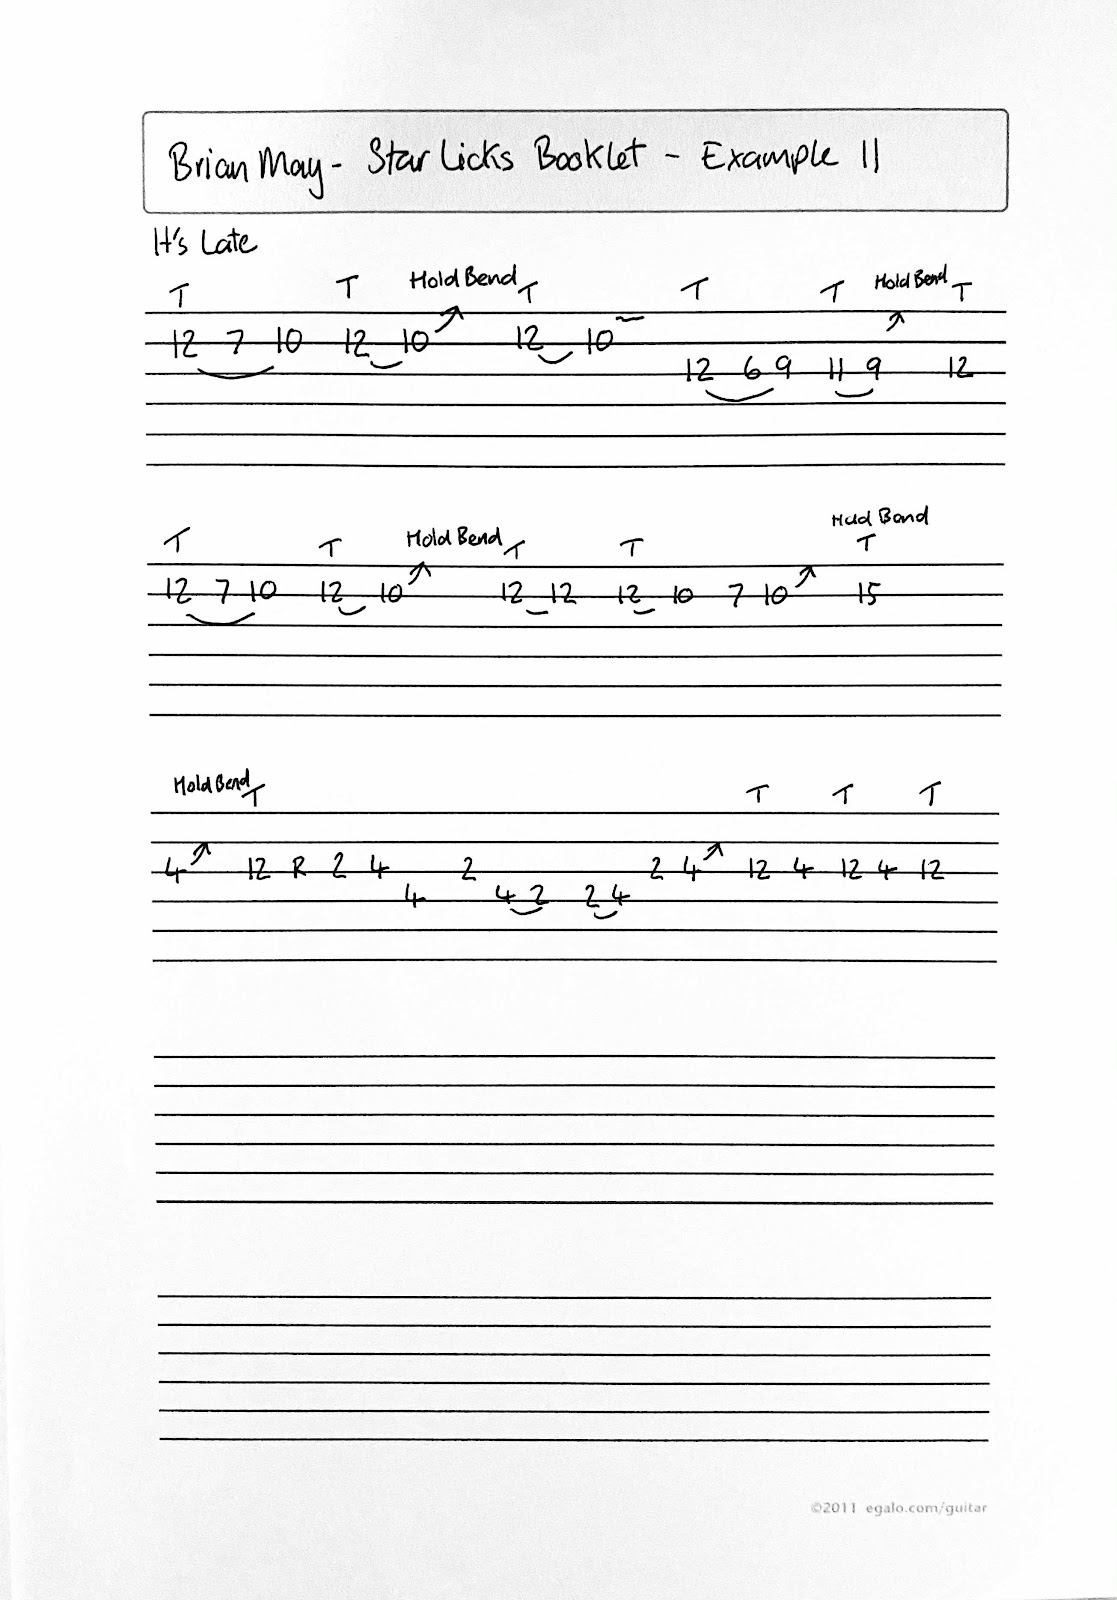 Brian May - Star Licks Booklet - Example 11
It's Late
T T Hold Bend T T T Hold Bend T
12 7 10 12 10 12 10
12 6 9 11 9 12
Hold Bend
T T Hold Bend T T T
12 7 10 12 10 12 12 12 10 7 10 15
Hold Bend T T T T
4 12 R 2 4 2 2 4 12 4 12 4 12
4 4 2 2 4
©2011 egalo.com/guitar